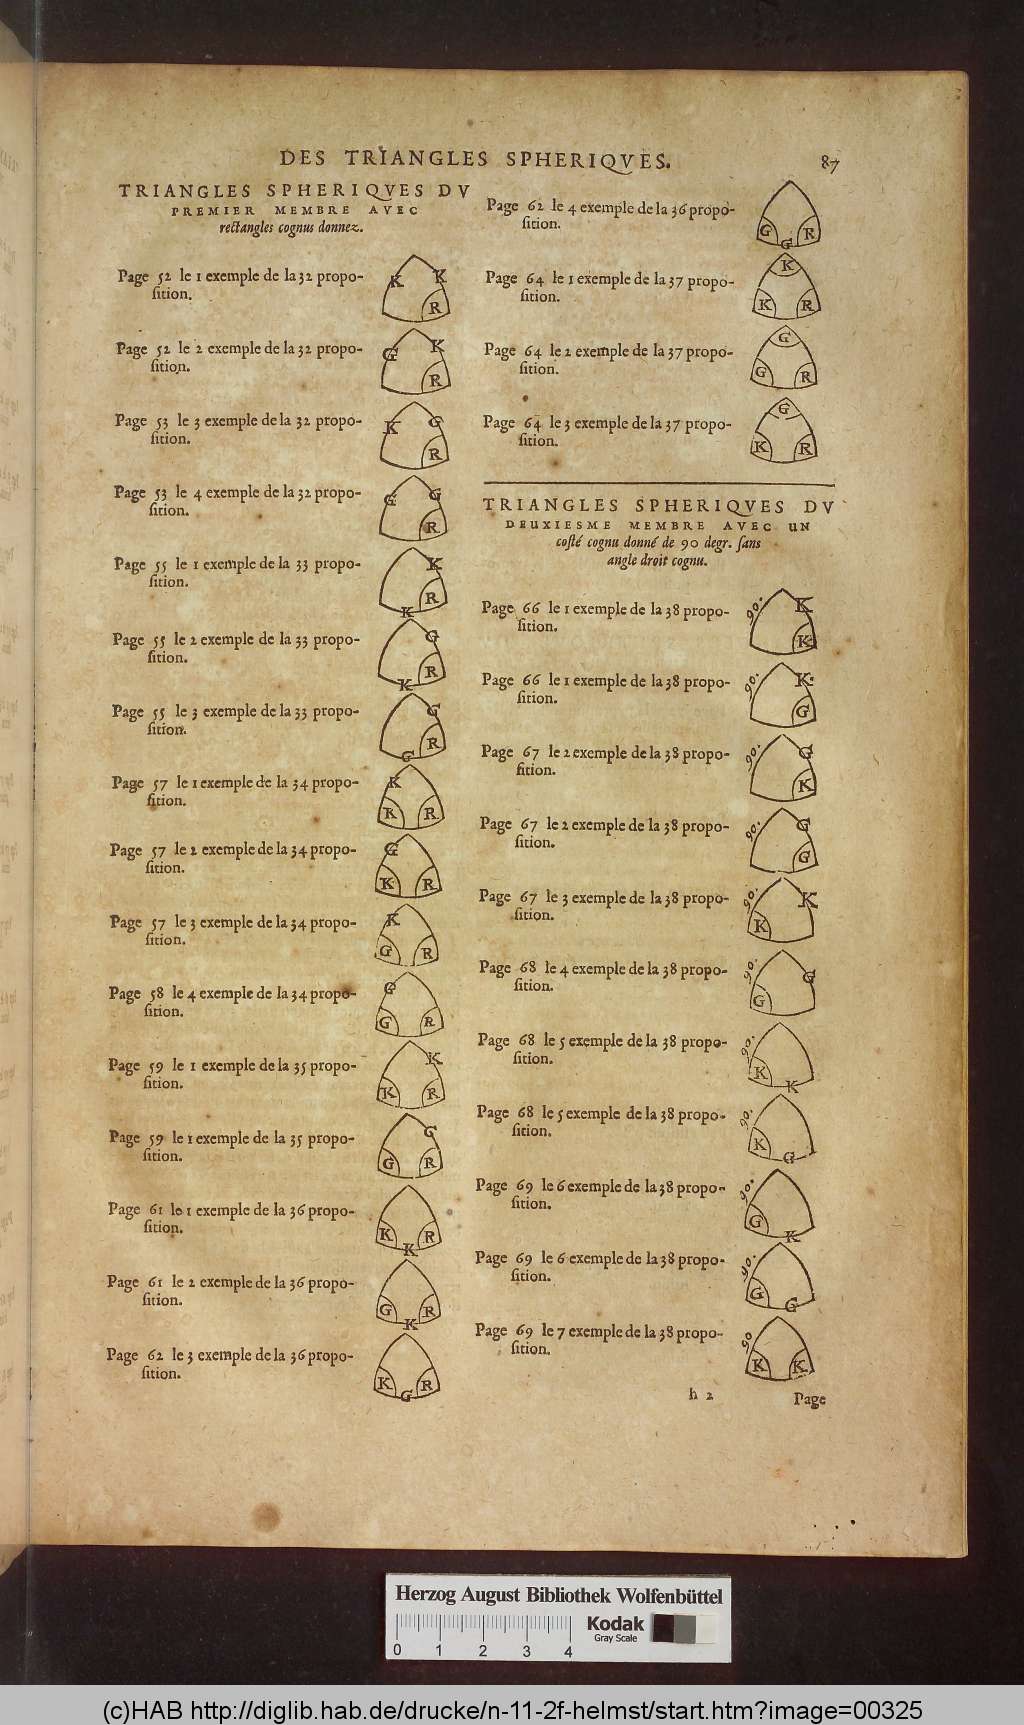 DES TRIANGLES SPHERIQVES. 87
TRIANGLES SPHERIQVES DV
PREMIER MEMBRE AVEC
rectangles cognus donnez.
Page 52 le 1 exemple de la 32 propo-
ſition.
K K R
Page 52 le 2 exemple de la 32 propo-
ſition.
G K R
Page 53 le 3 exemple de la 32 propo-
ſition.
K G R
Page 53 le 4 exemple de la 32 propo-
ſition.
G G R
Page 55 le 1 exemple de la 33 propo-
ſition.
K R K
Page 55 le 2 exemple de la 33 propo-
ſition.
G R K
Page 55 le 3 exemple de la 33 propo-
ſition.
G R G
Page 57 le 1 exemple de la 34 propo-
ſition.
K K R
Page 57 le 2 exemple de la 34 propo-
ſition.
G K R
Page 57 le 3 exemple de la 34 propo-
ſition.
K G R
Page 58 le 4 exemple de la 34 propo-
ſition.
G G R
Page 59 le 1 exemple de la 35 propo-
ſition.
K K R
Page 59 le 1 exemple de la 35 propo-
ſition.
G G R
Page 61 le 1 exemple de la 36 propo-
ſition.
K R K
Page 61 le 2 exemple de la 36 propo-
ſition.
G R K
Page 62 le 3 exemple de la 36 propo-
ſition.
K R G
Page 62 le 4 exemple de la 36 propo-
ſition.
G R G
Page 64 le 1 exemple de la 37 propo-
ſition.
K K R
Page 64 le 2 exemple de la 37 propo-
ſition.
G G R
Page 64 le 3 exemple de la 37 propo-
ſition.
G K R
TRIANGLES SPHERIQVES DV
DEUXIESME MEMBRE AVEC UN
coſté cognu donné de 90 degr. ſans
angle droit cognu.
Page 66 le 1 exemple de la 38 propo-
ſition.
90. K K
Page 66 le 1 exemple de la 38 propo-
ſition.
90. K G
Page 67 le 2 exemple de la 38 propo-
ſition.
90. G K
Page 67 le 2 exemple de la 38 propo-
ſition.
90. G G
Page 67 le 3 exemple de la 38 propo-
ſition.
90. K K
Page 68 le 4 exemple de la 38 propo-
ſition.
90. G G
Page 68 le 5 exemple de la 38 propo-
ſition.
90. K K
Page 68 le 5 exemple de la 38 propo-
ſition.
90. K G
Page 69 le 6 exemple de la 38 propo-
ſition.
90. G K
Page 69 le 6 exemple de la 38 propo-
ſition.
90. G G
Page 69 le 7 exemple de la 38 propo-
ſition.
90 K K
h 2 Page
Herzog August Bibliothek Wolfenbüttel
0 1 2 3 4
Kodak
Gray Scale
(c)HAB http://diglib.hab.de/drucke/n-11-2f-helmst/start.htm?image=00325